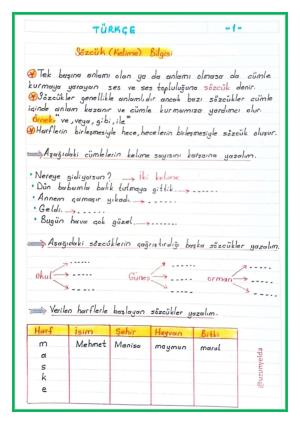 TÜRKÇE -1-
Sözcük (Kelime) Bilgisi
Tek başına anlamı olan ya da anlamı olmasa da cümle
kurmaya yarayan ses ve ses topluluğuna sözcük denir.
Sözcükler genellikle anlamlıdır ancak bazı sözcükler cümle
içinde anlam kazanır ve cümle kurmamıza yardımcı olur.
Örnek: "ve, veya, gibi, ile"
Harflerin birleşmesiyle hece, hecelerin birleşmesiyle sözcük oluşur.
Aşağıdaki cümlelerin kelime sayısını karşısına yazalım.
• Nereye gidiyorsun? → İki kelime
• Dün babamla balık tutmaya gittik. → -----
• Annem çamaşır yıkadı. → -----
• Geldi. → -----
• Bugün hava çok güzel. → -----
Aşağıdaki sözcüklerin çağrıştırdığı başka sözcükler yazalım.
okul Güneş orman
Verilen harflerle başlayan sözcükler yazalım.
Harf İsim Şehir Hayvan Bitki
m Mehmet Manisa maymun marul
a
s
k
e
@uzunyelda